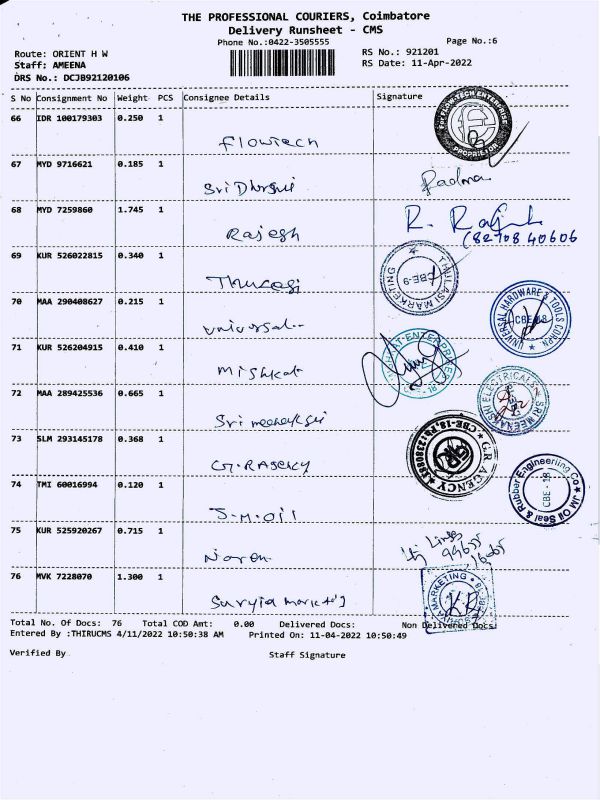 THE PROFESSIONAL COURIERS, Coimbatore
Delivery Runsheet - CMS
Phone No.:0422-3505555
Page No.:6
Route: ORIENT H W
RS No.: 921201
Staff: AMEENA
RS Date: 11-Apr-2022
DRS No.: DCJB92120106
S No Consignment No Weight PCS Consignee Details Signature
66 IDR 100179303 0.250 1
Flowtech
PROPRIETOR
67 MYD 9716621 0.185 1
Padma
68 MYD 7259860 1.745 1
Rajesh
R.
69 KUR 526022815 0.340 1
THULASI MARKETING
CBE-9
70 MAA 290408627 0.215 1
universal
UNIVERSAL HARDWARE & TOOLS CORPN
CBE-18
71 KUR 526204915 0.410 1
Mishkat
72 MAA 289425536 0.665 1
Sri meenakshi
SRI MEENAKSHI ELECTRICALS
73 SLM 293145178 0.368 1
G.R AGENCY
74 TMI 60016994 0.120 1
J.M.oil
JM Oil Seal & Rubber Engineering Co
CBE - 18
75 KUR 525920267 0.715 1
Naren
76 MVK 7228070 1.300 1
MARKETING
Total No. Of Docs: 76 Total COD Amt: 0.00 Delivered Docs: Non Delivered Docs:
Entered By :THIRUCMS 4/11/2022 10:50:38 AM Printed On: 11-04-2022 10:50:49
Verified By
Staff Signature